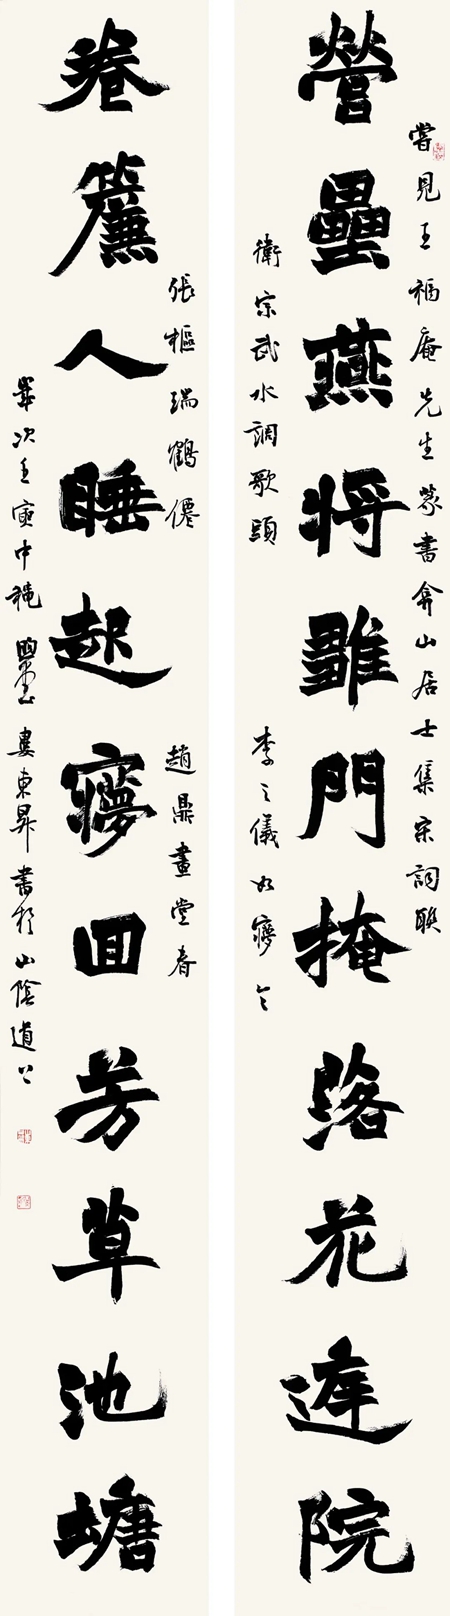 嘗見王福庵先生篆書弇山居士集宋詞聯
營壘燕將雛門掩落花庭院
衛宗武水調歌頭
李之儀如夢令
捲簾人睡起夢回芳草池塘
張樞瑞鶴僊
趙鼎畫堂春
歲次壬寅中穐
婁東昇書於山陰道上